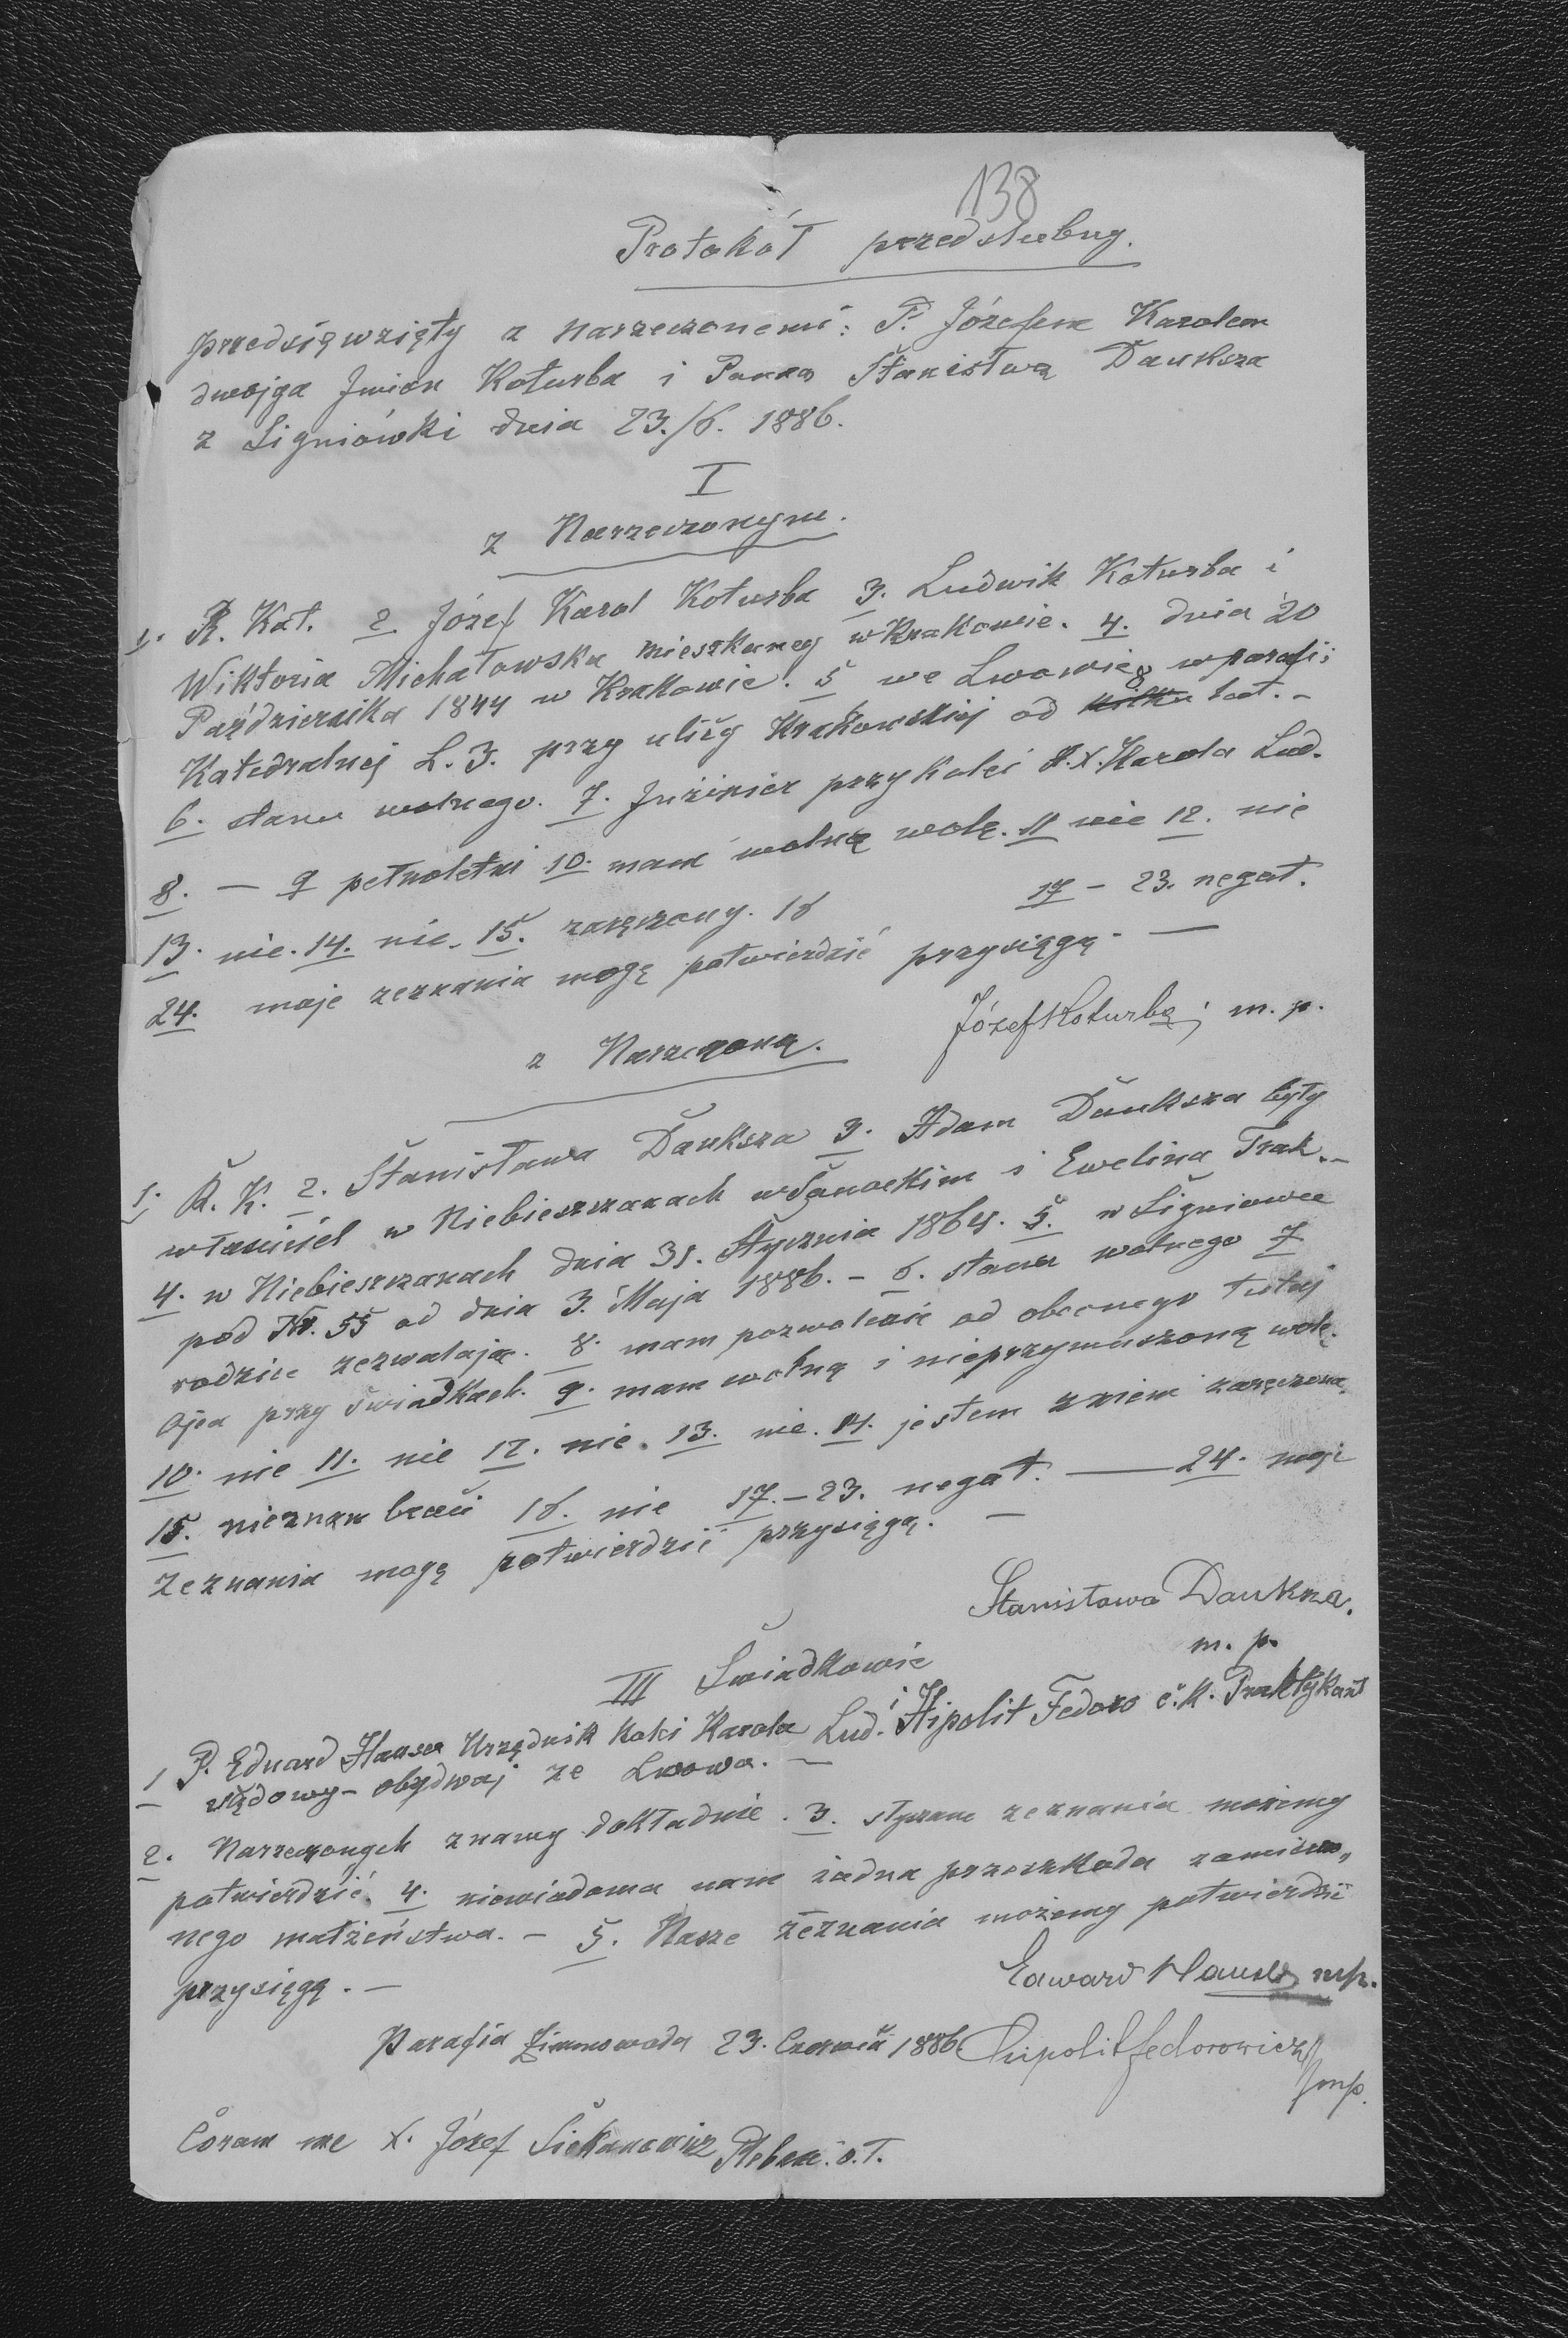 138
Protokół przedślubny.
przedsięwzięty z narzeczonemi: P. Józefem Karolem
dwojga Imion Koturba i Panną Stanisławą Dauksza
z Signiówki dnia 23./6. 1886.
I
z Narzeczonym.
1. R. Kat. 2 Józef Karol Koturba 3. Ludwik Koturba i
Wiktoria Michałowska mieszkancy w Krakowie. 4. dnia 20
Października 1844 w Krakowie. 5 we Lwowie w parafii
Katedralnej L. 3. przy ulicy Krakowskiej od 8 lat. -
6. stanu wolnego. 7. Inżinier przy kolei Karola Lud.
8. — 9 pełnoletni 10. mam wolną wolę. 11 nie 12. nie
13. nie. 14. nie. 15. zaręczony. 16 17 - 23. negat.
24. moje zeznania mogę potwierdzić przysięgą. —
Józef Koturba m. p.
z Narzeczoną.
1. R. K. 2. Stanisława Dauksza 3. Adam Dauksza były
właściciel w Niebieszczanach w Sanockim i Ewelina Trak. -
4. w Niebieszczanach dnia 31. Stycznia 1864. 5. w Signiowce
pod Nr. 55 od dnia 3. Maja 1886. - 6. stanu wolnego 7
rodzice zezwalają. 8. mam pozwolenie od obecnego tutej
Ojca przy świadkach. 9. mam wolną i nieprzymuszoną wolę.
10. nie 11. nie 12. nie. 13. nie. 14. jestem z niem zaręczona.
15. nieznam braci 16. nie 17. - 23. negat. — 24. moje
zeznania mogę potwierdzić przysięgą. -
Stanisława Dauksza.
m. p.
III Świadkowie
1 P. Eduard Hauser Urzędnik kolei Karola Lud. i Hipolit Fedoro c. k. Praktykant
sądowy - obydwaj ze Lwowa. -
2. Narzeczonych znamy dokładnie. 3. słyszane zeznania możemy
potwierdzić. 4. niewiadoma nam żadna przeszkoda zamierzo„
nego małżeństwa. - 5. Nasze zeznania możemy potwierdzić
przysięgą. -
Edward Hauser mp.
Parafia Zimnawoda 23. Czerwca 1886
Hipolit Fedorowicz
mp.
Coram me X. Józef Pleban o. ł.